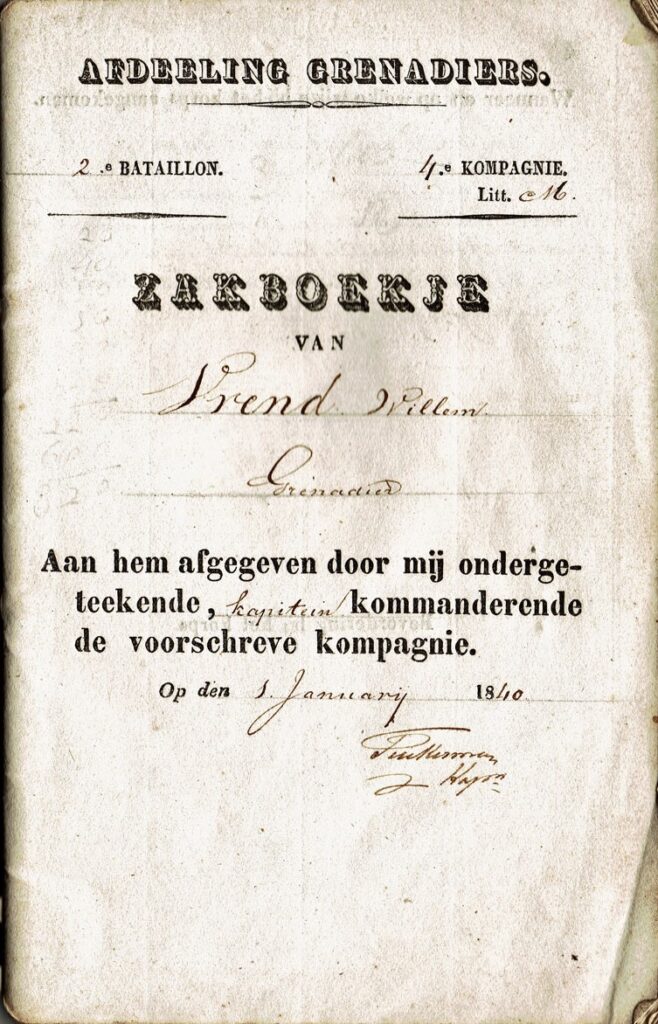 AFDEELING GRENADIERS.
2.e BATAILLON. 4.e KOMPAGNIE.
Litt. M.
ZAKBOEKJE
VAN
Vrend Willem
Grenadier
Aan hem afgegeven door mij onderge-
teekende, kapitein kommanderende
de voorschreve kompagnie.
Op den 1. Januarij 1840